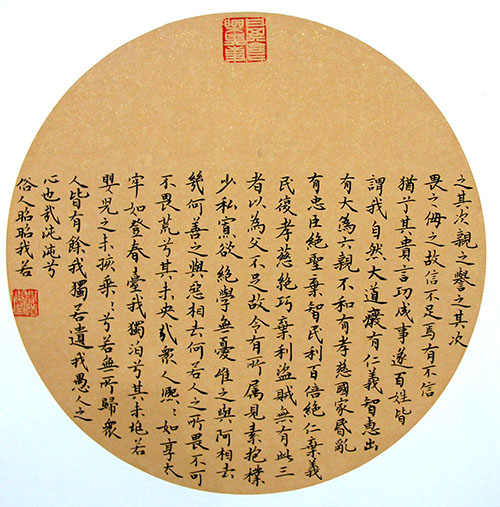 之其次親之譽之其次
畏之侮之故信不足焉有不信
猶兮其貴言功成事遂百姓皆
謂我自然大道廢有仁義智惠出
有大為六親不和有孝慈國家昏亂
有忠臣絕聖棄智民利百倍絕仁棄義
民復孝慈絕巧棄利盜賊無有此三
者以為文不足故令有所属見素抱樸
少私寡欲絕學無憂唯之與阿相去
幾何善之與惡相去何若人之所畏不可
不畏荒兮其未央哉眾人熙〻如享太
牢如登春臺我獨泊兮其未兆若
嬰兒之未孩乘〻兮若無所歸眾
人皆有餘我獨若遺我愚人之
心也哉沌沌兮
俗人昭昭我若